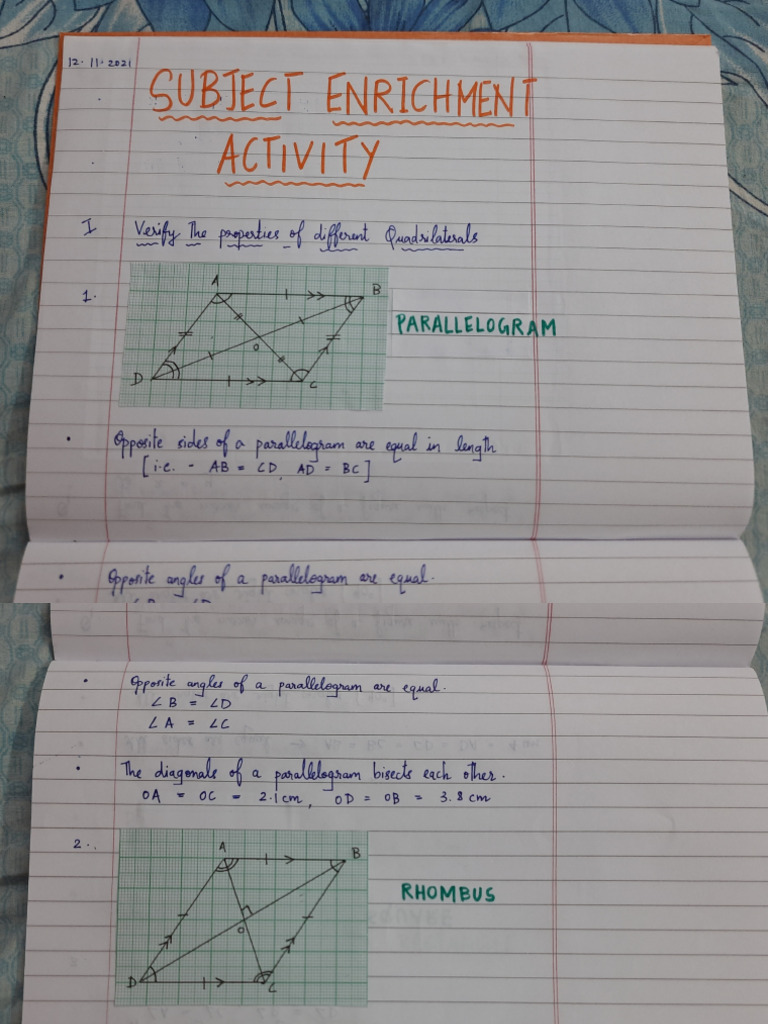 12.11.2021
SUBJECT ENRICHMENT
ACTIVITY
I Verify the properties of different Quadrilaterals
1.
A
B
PARALLELOGRAM
O
D
C
• Opposite sides of a parallelogram are equal in length
[i.e. - AB = CD, AD = BC]
• Opposite angles of a parallelogram are equal.
• Opposite angles of a parallelogram are equal.
∠B = ∠D
∠A = ∠C
• The diagonals of a parallelogram bisects each other.
OA = OC = 2.1cm, OD = OB = 3.8 cm
2.
A
B
RHOMBUS
O
D
C